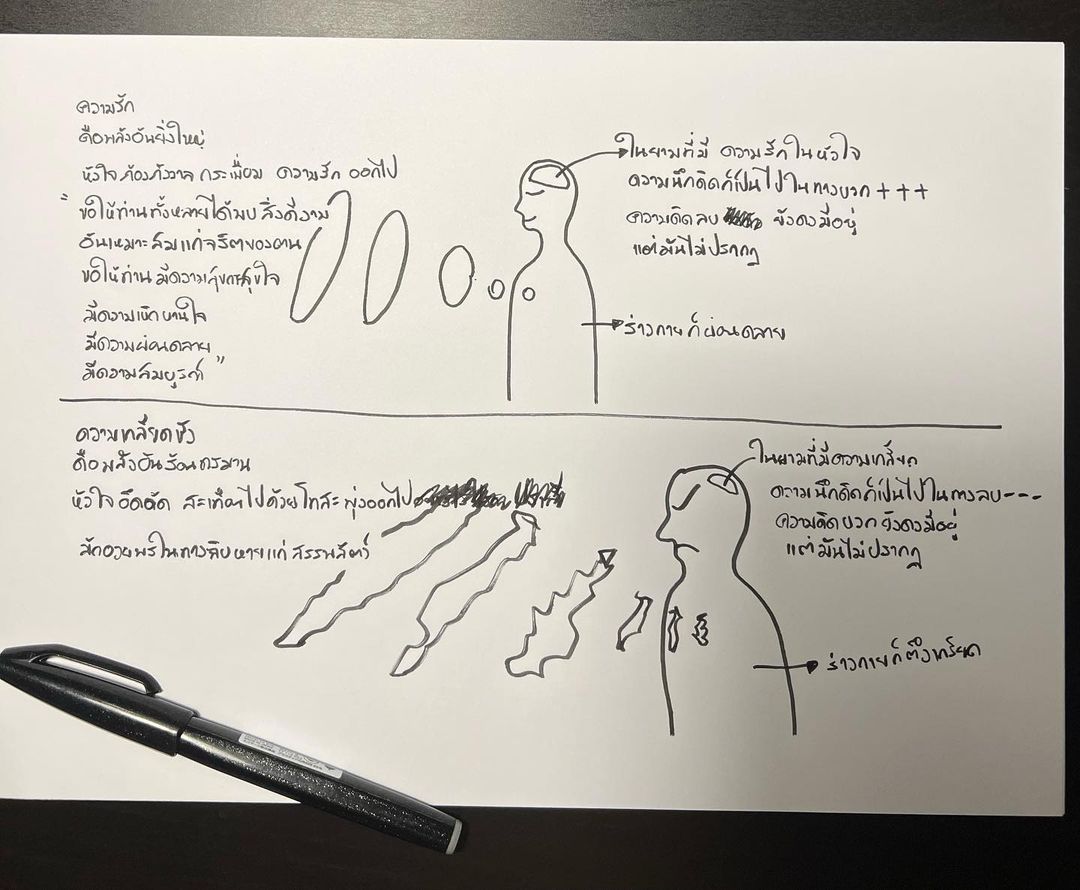 ความรัก
คือพลังอันยิ่งใหญ่
หัวใจก้องกังวาล กระเพื่อม ความรัก ออกไป
"ขอให้ท่านทั้งหลายได้พบสิ่งดีงาม
อันเหมาะสมแก่จริตของตน
ขอให้ท่านมีความสุขกายสุขใจ
มีความเบิกบานใจ
มีความผ่อนคลาย
มีความสมบูรณ์"
ในยามที่มี ความรักในหัวใจ
ความนึกคิดก็เป็นไปในทางบวก +++
ความคิดลบ ยังคงมีอยู่
แต่มันไม่ปรากฏ
ร่างกายก็ผ่อนคลาย
ความเกลียดชัง
คือพลังอันร้อนทรมาน
หัวใจอึดอัด สะเทือนไปด้วยโทสะพุ่งออกไป
มักอวยพรในทางฉิบหายแก่สรรพสัตว์
ในยามที่มีความเกลียด
ความนึกคิดก็เป็นไปในทางลบ---
ความคิดบวก ยังคงมีอยู่
แต่มันไม่ปรากฏ
ร่างกายก็ตึงเครียด